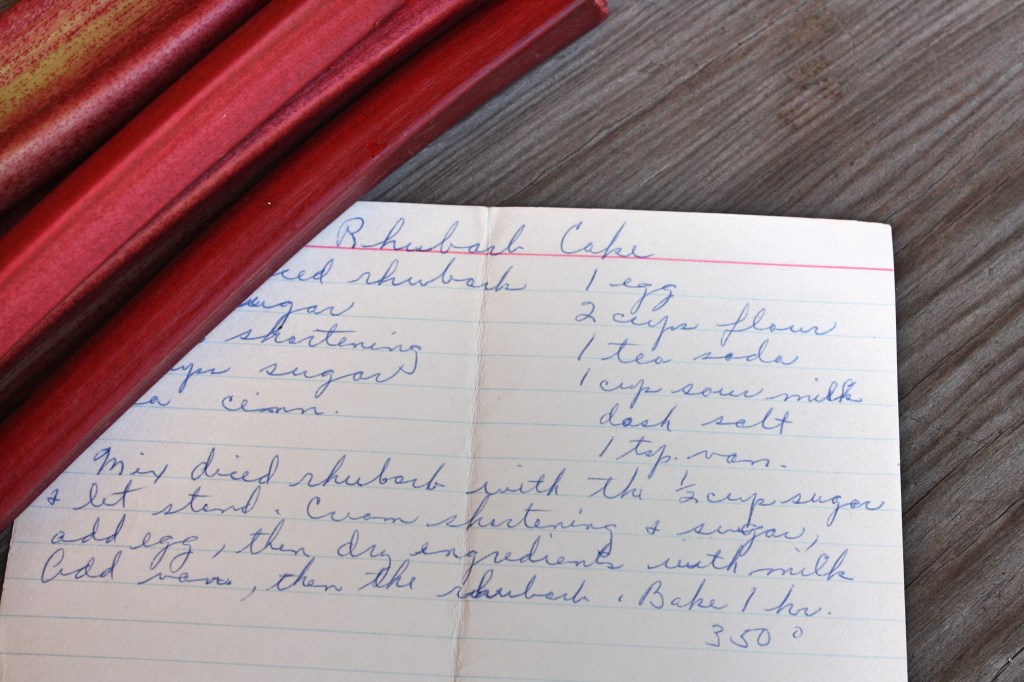 Rhubarb Cake
rhubarb 1 egg
sugar 2 cups flour
shortening 1 tea soda
sugar 1 cup sour milk
cinn. dash salt
1 tsp. van.
Mix diced rhubarb with the ½ cup sugar
& let stand. Cream shortening & sugar,
add egg, then dry ingredients with milk
Add van., then the rhubarb. Bake 1 hr.
350°